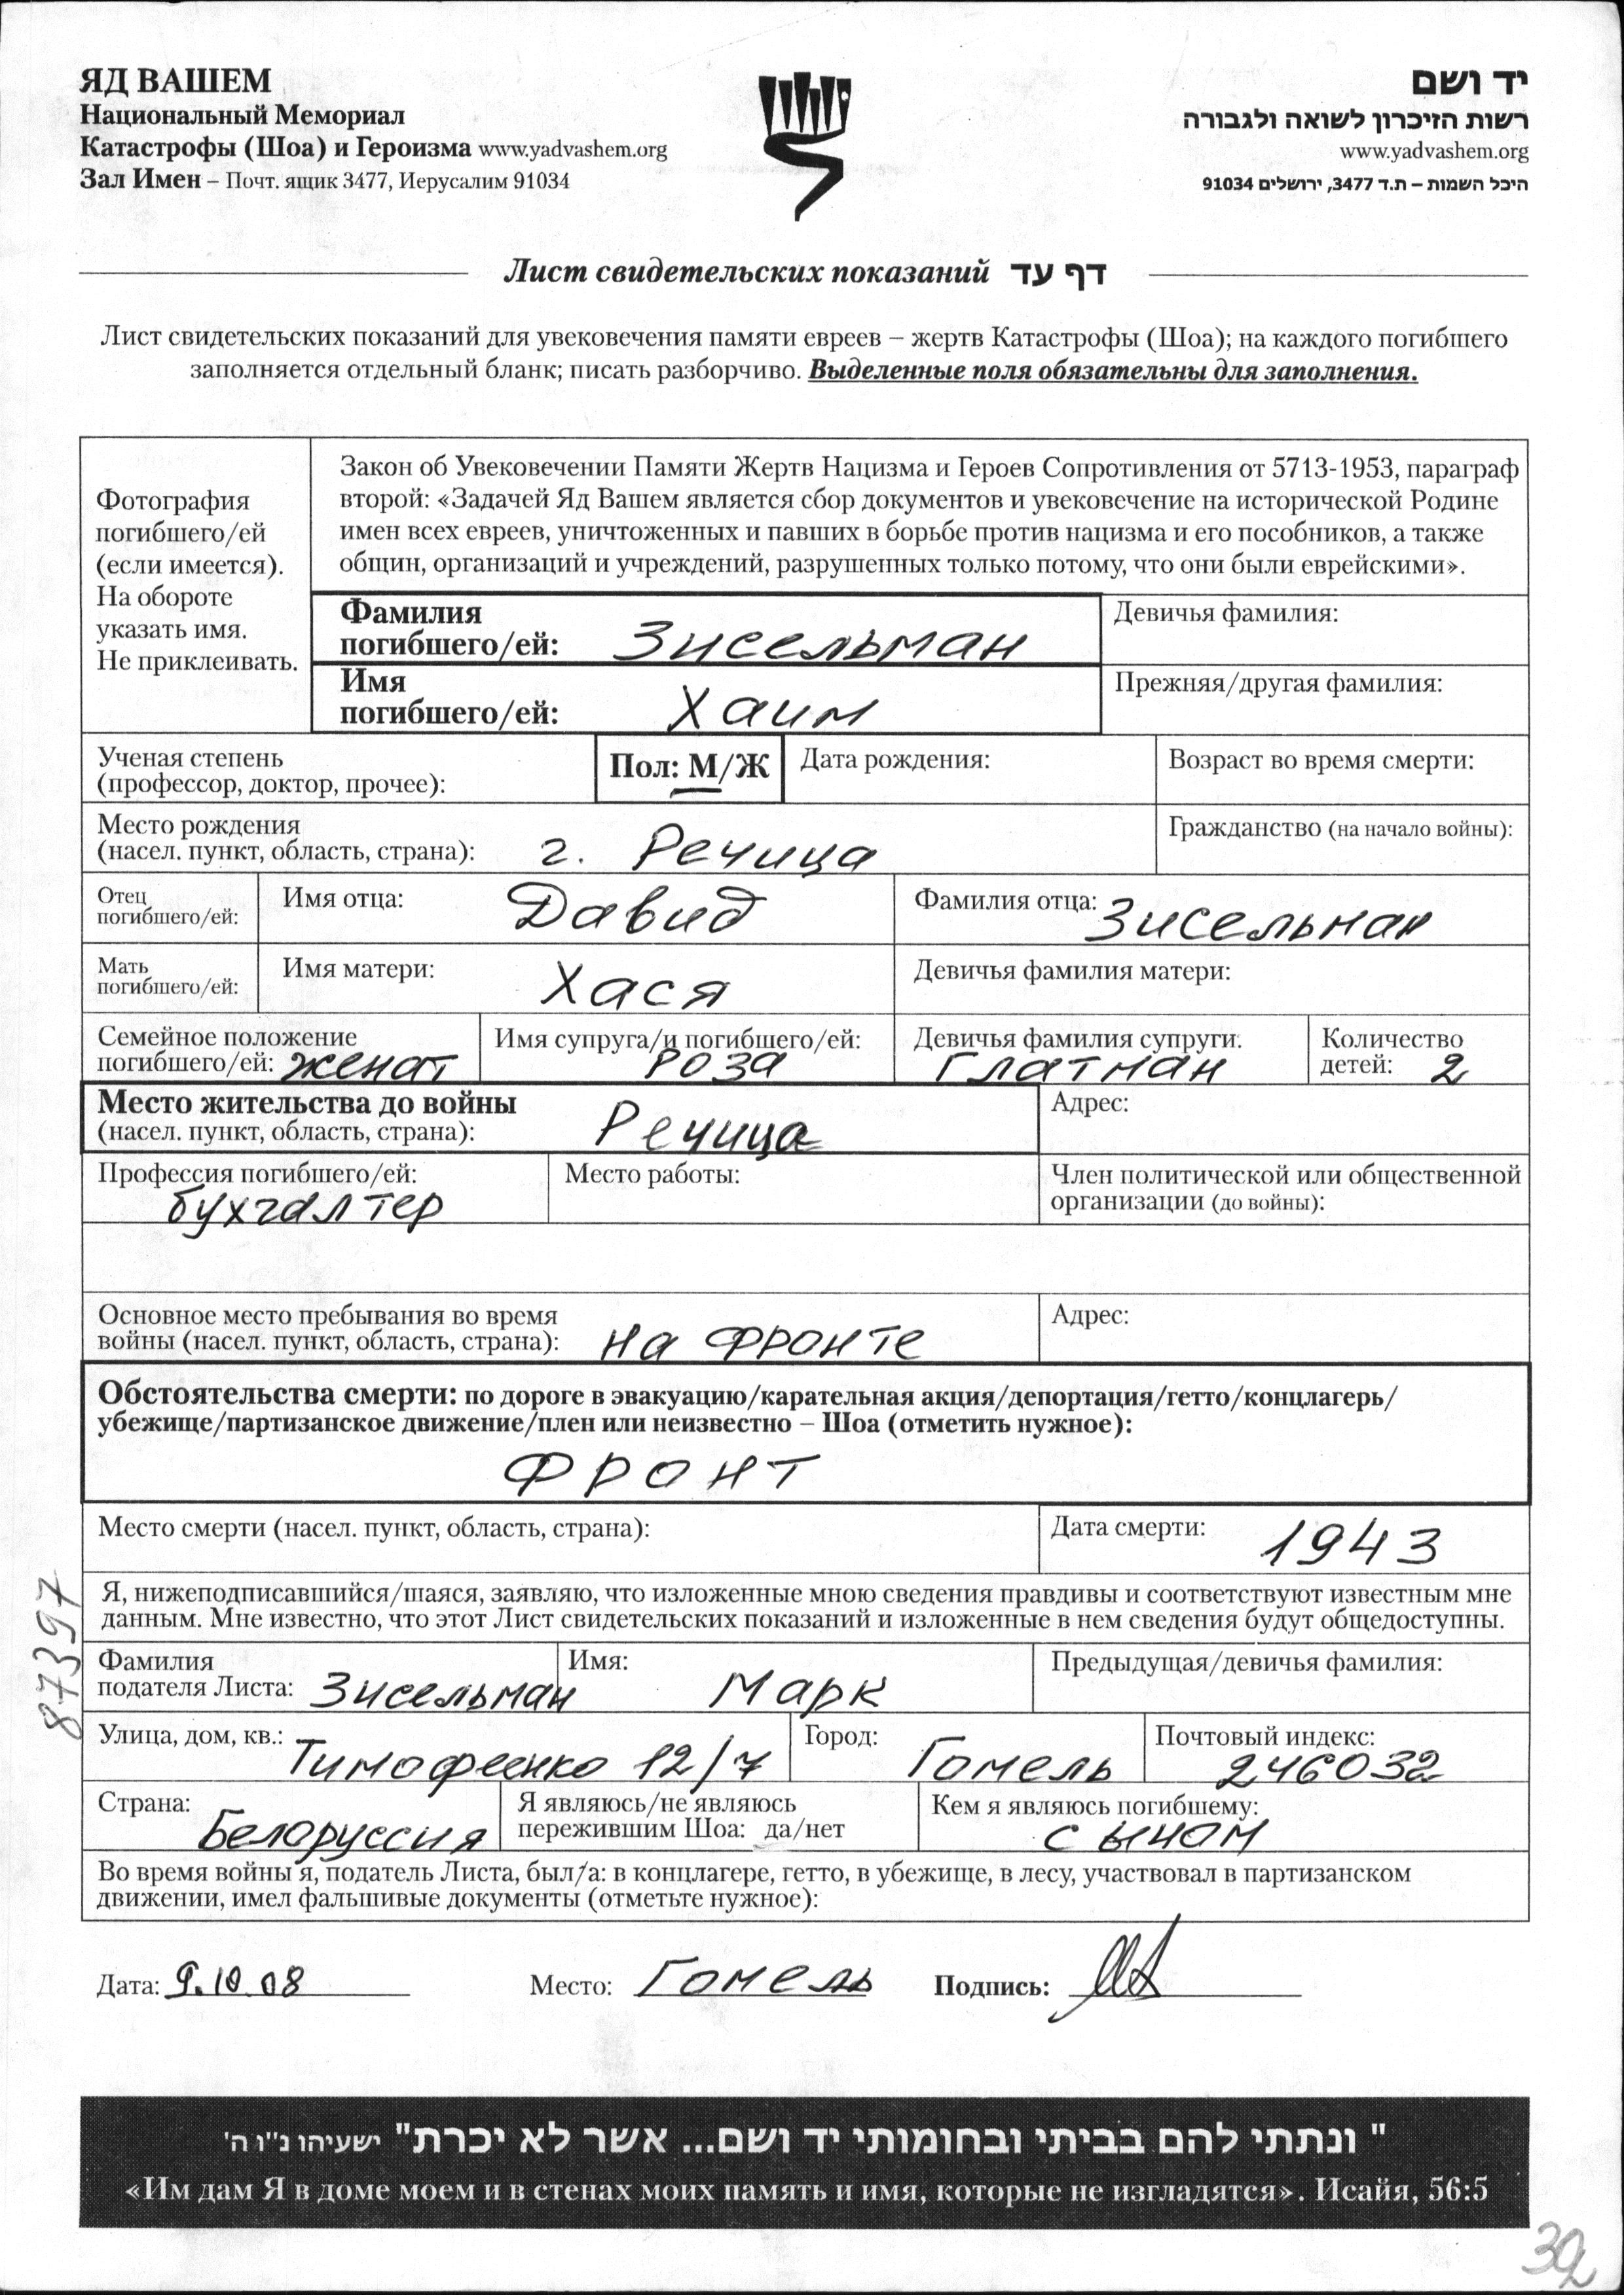 ЯД ВАШЕМ
Национальный Мемориал
Катастрофы (Шоа) и Героизма www.yadvashem.org
Зал Имен – Почт. ящик 3477, Иерусалим 91034
יד ושם
רשות הזיכרון לשואה ולגבורה
www.yadvashem.org
היכל השמות – ת.ד 3477, ירושלים 91034
Лист свидетельских показаний דף עד
Лист свидетельских показаний для увековечения памяти евреев – жертв Катастрофы (Шоа); на каждого погибшего
заполняется отдельный бланк; писать разборчиво. Выделенные поля обязательны для заполнения.
Фотография
погибшего/ей
(если имеется).
На обороте
указать имя.
Не приклеивать.
Закон об Увековечении Памяти Жертв Нацизма и Героев Сопротивления от 5713-1953, параграф
второй: «Задачей Яд Вашем является сбор документов и увековечение на исторической Родине
имен всех евреев, уничтоженных и павших в борьбе против нацизма и его пособников, а также
общин, организаций и учреждений, разрушенных только потому, что они были еврейскими».
Фамилия
погибшего/ей: Зисельман
Девичья фамилия:
Имя
погибшего/ей: Хаим
Прежняя/другая фамилия:
Ученая степень
(профессор, доктор, прочее):
Пол: М/Ж
Дата рождения:
Возраст во время смерти:
Место рождения
(насел. пункт, область, страна): г. Речица
Гражданство (на начало войны):
Отец
погибшего/ей:
Имя отца: Давид
Фамилия отца: Зисельман
Мать
погибшего/ей:
Имя матери: Хася
Девичья фамилия матери:
Семейное положение
погибшего/ей: женат
Имя супруга/и погибшего/ей:
Роза
Девичья фамилия супруги:
Глатман
Количество
детей: 2
Место жительства до войны
(насел. пункт, область, страна): Речица
Адрес:
Профессия погибшего/ей:
бухгалтер
Место работы:
Член политической или общественной
организации (до войны):
Основное место пребывания во время
войны (насел. пункт, область, страна): на фронте
Адрес:
Обстоятельства смерти: по дороге в эвакуацию/карательная акция/депортация/гетто/концлагерь/
убежище/партизанское движение/плен или неизвестно – Шоа (отметить нужное):
фронт
Место смерти (насел. пункт, область, страна):
Дата смерти: 1943
Я, нижеподписавшийся/шаяся, заявляю, что изложенные мною сведения правдивы и соответствуют известным мне
данным. Мне известно, что этот Лист свидетельских показаний и изложенные в нем сведения будут общедоступны.
87397
Фамилия
подателя Листа: Зисельман
Имя: Марк
Предыдущая/девичья фамилия:
Улица, дом, кв.: Тимофеенко 12/7
Город: Гомель
Почтовый индекс:
246032
Страна:
Белоруссия
Я являюсь/не являюсь
пережившим Шоа: да/нет
Кем я являюсь погибшему:
сыном
Во время войны я, податель Листа, был/а: в концлагере, гетто, в убежище, в лесу, участвовал в партизанском
движении, имел фальшивые документы (отметьте нужное):
Дата: 9.10.08 Место: Гомель Подпись:
" ונתתי להם בביתי ובחומותי יד ושם... אשר לא יכרת" ישעיהו נ"ו ה'
«Им дам Я в доме моем и в стенах моих память и имя, которые не изгладятся». Исайя, 56:5